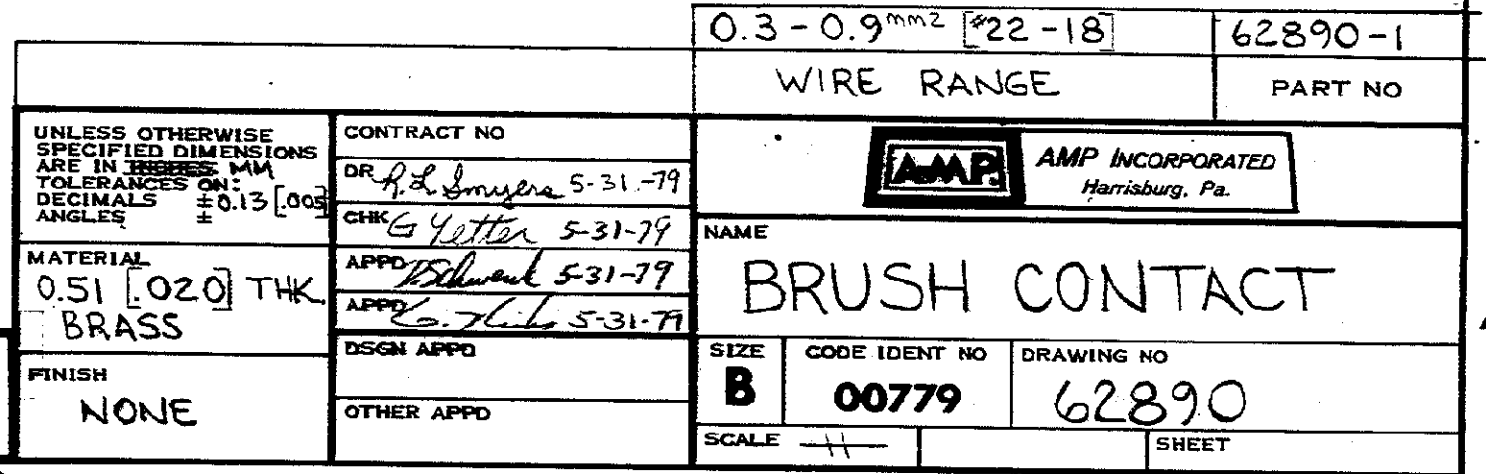 0.3 - 0.9 mm2 [#22 - 18]
62890-1
WIRE RANGE
PART NO
UNLESS OTHERWISE
SPECIFIED DIMENSIONS
ARE IN INCHES MM
TOLERANCES ON:
DECIMALS ±0.13 [.005]
ANGLES ±
MATERIAL
0.51 [.020] THK.
BRASS
FINISH
NONE
CONTRACT NO
DR R.L. Smyers 5-31-79
CHK G Yetter 5-31-79
APPD 5-31-79
APPD 5-31-79
DSGN APPD
OTHER APPD
AMP
AMP INCORPORATED
Harrisburg, Pa.
NAME
BRUSH CONTACT
SIZE
B
CODE IDENT NO
00779
DRAWING NO
62890
SCALE
SHEET